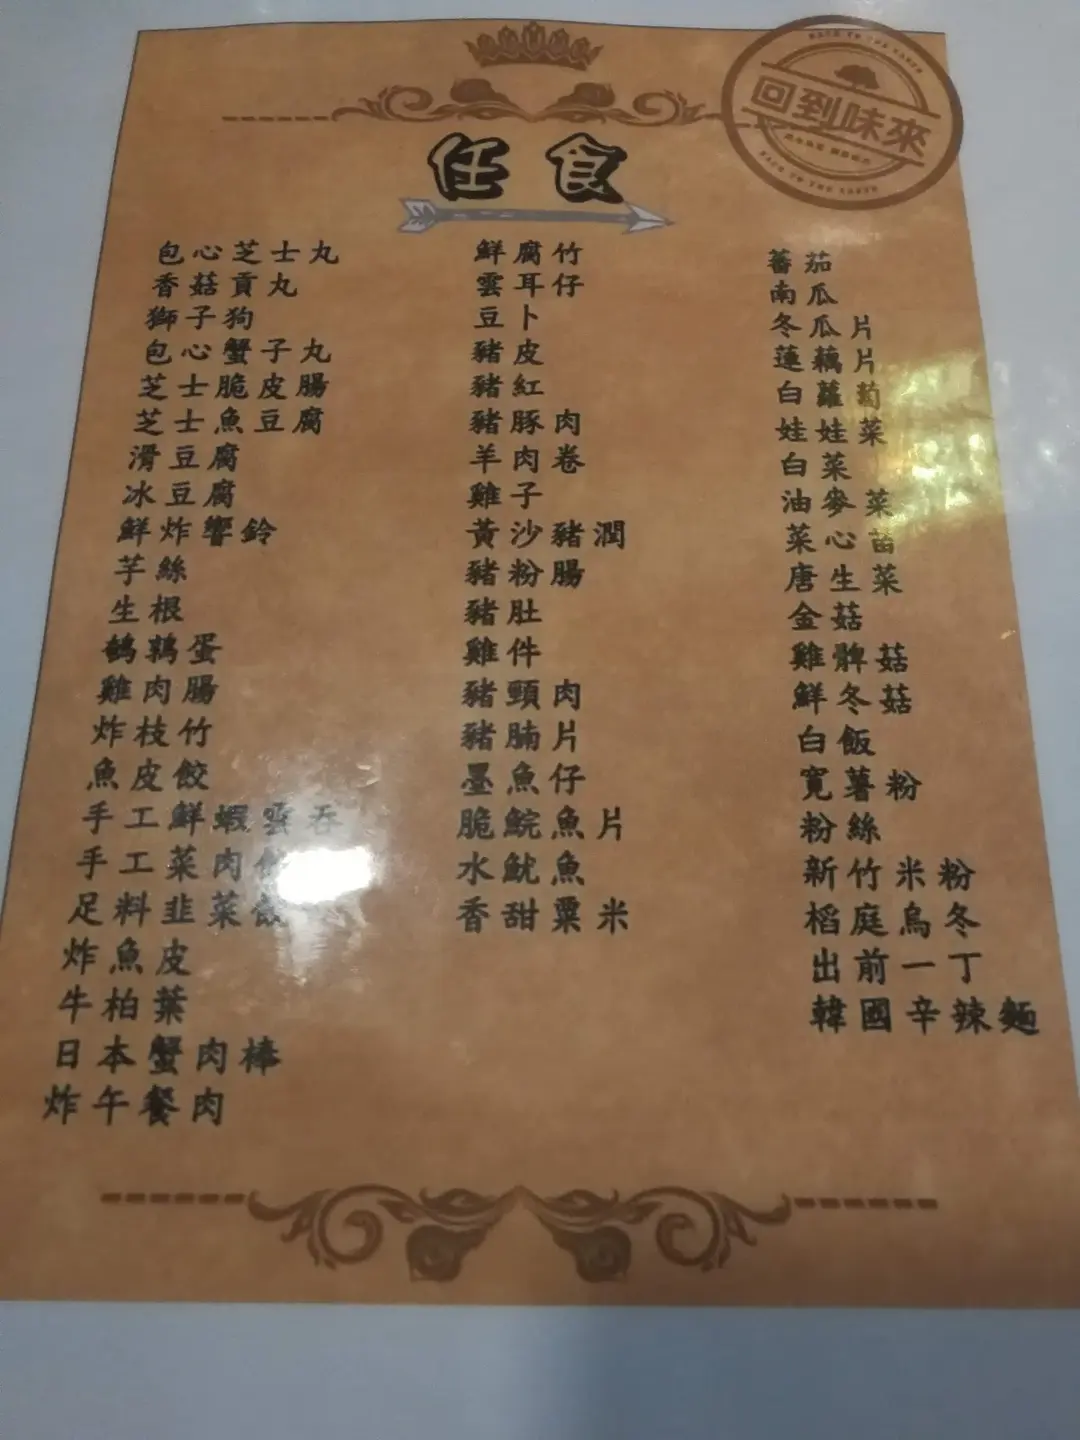 BACK TO THE TASTE
回到味來
BACK TO THE TASTE
任食
包心芝士丸
香菇貢丸
獅子狗
包心蟹子丸
芝士脆皮腸
芝士魚豆腐
滑豆腐
冰豆腐
鮮炸響鈴
芋絲
生根
鵪鶉蛋
雞肉腸
炸枝竹
魚皮餃
手工鮮蝦雲吞
手工菜肉
足料韭菜餃
炸魚皮
牛柏葉
日本蟹肉棒
炸午餐肉
鮮腐竹
雲耳仔
豆卜
豬皮
豬紅
豬豚肉
羊肉卷
雞子
黃沙豬潤
豬粉腸
豬肚
雞件
豬頸肉
豬腩片
墨魚仔
脆鯇魚片
水魷魚
香甜粟米
蕃茄
南瓜
冬瓜片
蓮藕片
白蘿蔔
娃娃菜
白菜
油麥菜
菜心苗
唐生菜
金菇
雞髀菇
鮮冬菇
白飯
寬薯粉
粉絲
新竹米粉
稻庭烏冬
出前一丁
韓國辛辣麵